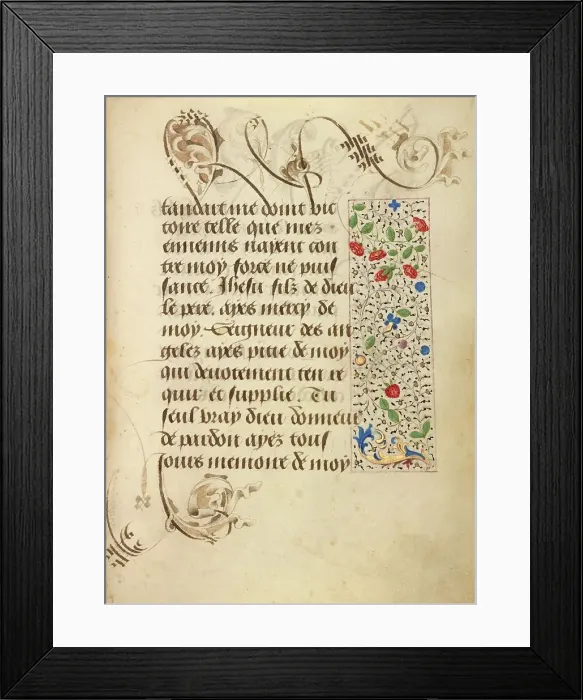 tandart me doint vic
toire telle que mes
ennemis naient con
tre moy force ne puis
sance. Jhesu filz de dieu
le pere. ayes mercy de
moy. Seigneur des an
gelez ayes pitie de moy
qui devotement ten re
quier et supplie. Tu
seul vray dieu donneur
de pardon ayez tous
iours memoire de moy